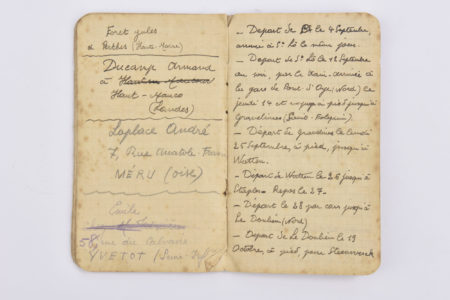 Foret Jules
à Perthes (Haute-Marne)
Ducamp Armand
à
Haut-Mauco
(Landes)
Laplace André
7, Rue Anatole-France
MÉRU (Oise)
Emile
58, rue du Calvaire
YVETOT (Seine-Inf
— Départ de le 4 Septembre,
arrivée à St Lô le même jour.
— Départ de St Lô le 12 Septembre
au soir, par le train. arrivée à
la gare de Pont d'Oye (Nord) le
jeudi 14 et voyage à pied jusqu'à
Gravelines
— Départ de Gravelines le lundi
25 Septembre, à pied, jusqu'à
Watten.
— Départ de Watten le 26 jusqu'à
Staple — Repos le 27 —
— Départ le 28 par cars jusqu'à
Le Doulieu (Nord)
— Départ de Le Doulieu le 19
Octobre, à pied, pour Steenwerck